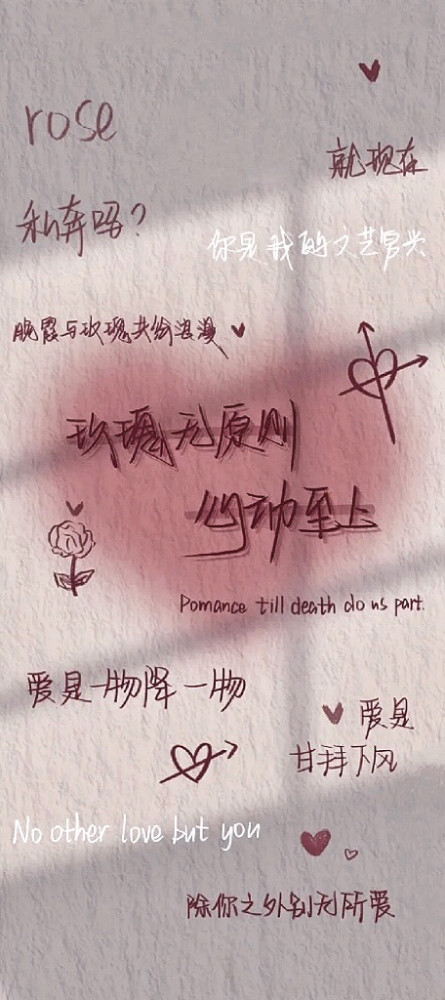 rose
就现在
私奔吗？
你是我的文艺复兴
晚霞与玫瑰共绘浪漫
玫瑰无原则
心动至上
Pomance till death do us part.
爱是一物降一物
爱是
甘拜下风
No other love but you
除你之外别无所爱